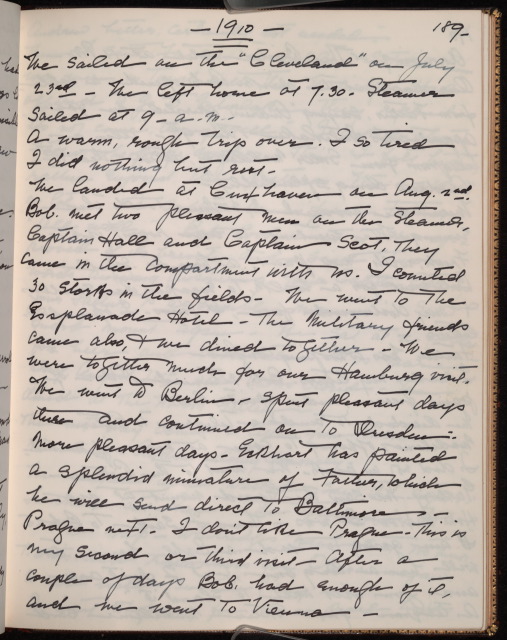 — 1910 — 189-
We sailed on the "Cleveland" on July
23rd — We left home at 7.30. Steamer
sailed at 9 – a.m. –
A warm, rough trip over. I so tired
I did nothing but rest –
We landed at Cuxhaven on Aug. 2nd.
Bob. met two pleasant men on the steamer,
Captain Hall and Captain Scot. They
came in the compartment with us. I counted
30 storks in the fields – We went to the
Esplanade Hotel – The Military friends
came also, & we dined together – We
were together much for our Hamburg visit.
We went to Berlin – spent pleasant days
there and continued on to Dresden –
More pleasant days – Eckhart has painted
a splendid miniature of Father, which
he will send direct to Baltimore –
Prague next. I don't like Prague – This is
my second or third visit – After a
couple of days Bob. had enough of it,
and we went to Vienna –